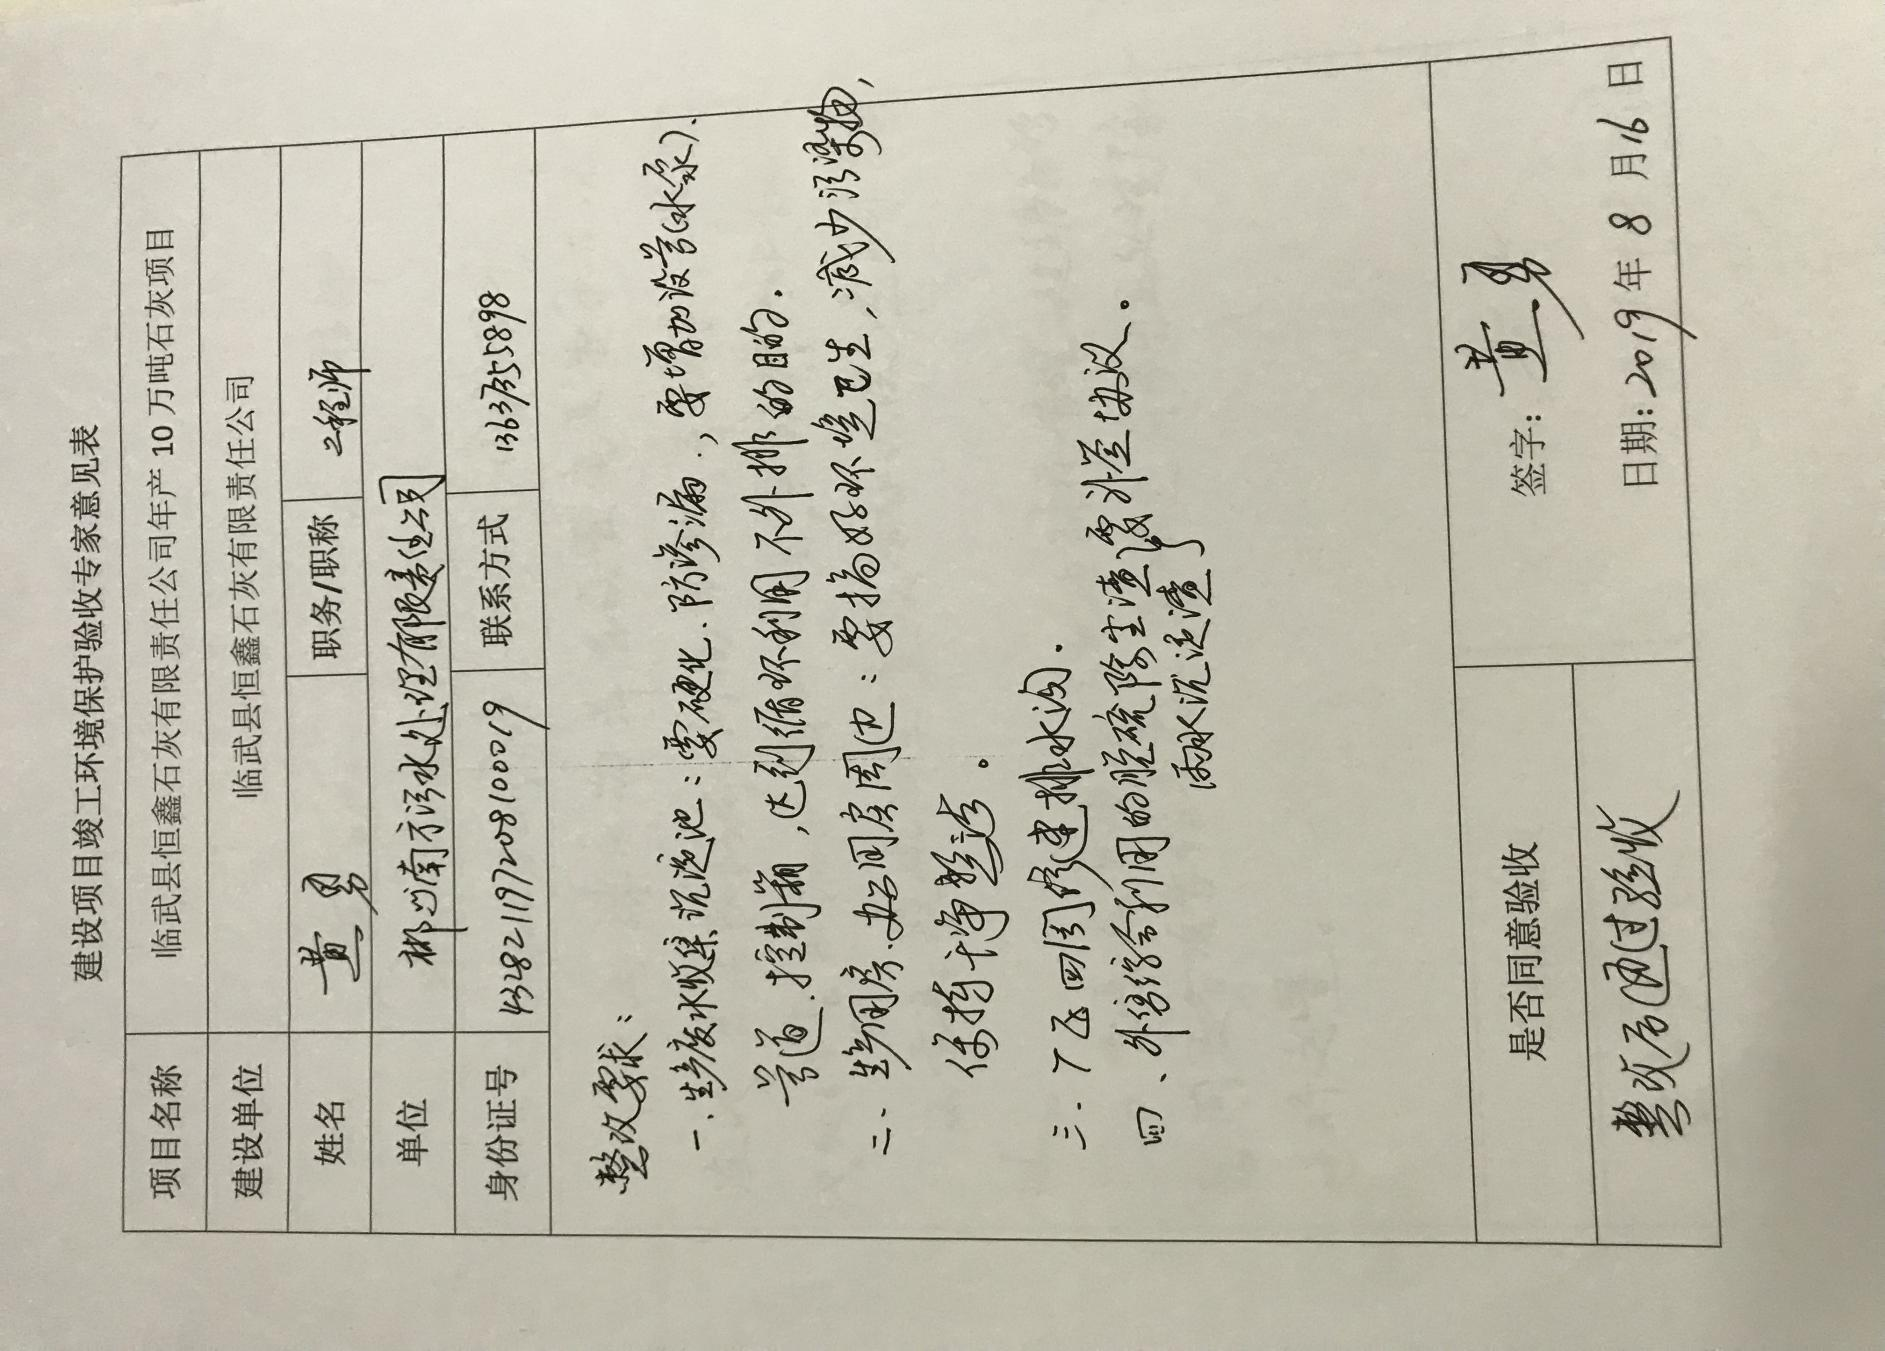 建设项目竣工环境保护验收专家意见表
项目名称 临武县恒鑫石灰有限责任公司年产 10 万吨石灰项目
建设单位 临武县恒鑫石灰有限责任公司
姓名 黄勇 职务/职称 工程师
单位 郴州南方污水处理有限责任公司
身份证号 432821197208100019 联系方式 13637355898
整改要求：
一、生产废水收集沉淀池：要硬化、防渗漏，要增加设备(水泵)、
管道、控制箱，达到循环利用不外排的目的.
二、生产用房、办公用房周边：要搞好环境卫生，减少污染物，
保持干净整洁。
三、厂区四周修建排水沟.
四、外综合利用的脱硫除尘渣要外签协议。
雨水沉淀渣
是否同意验收 签字: 黄勇
整改后通过验收 日期: 2019 年 8 月 16 日